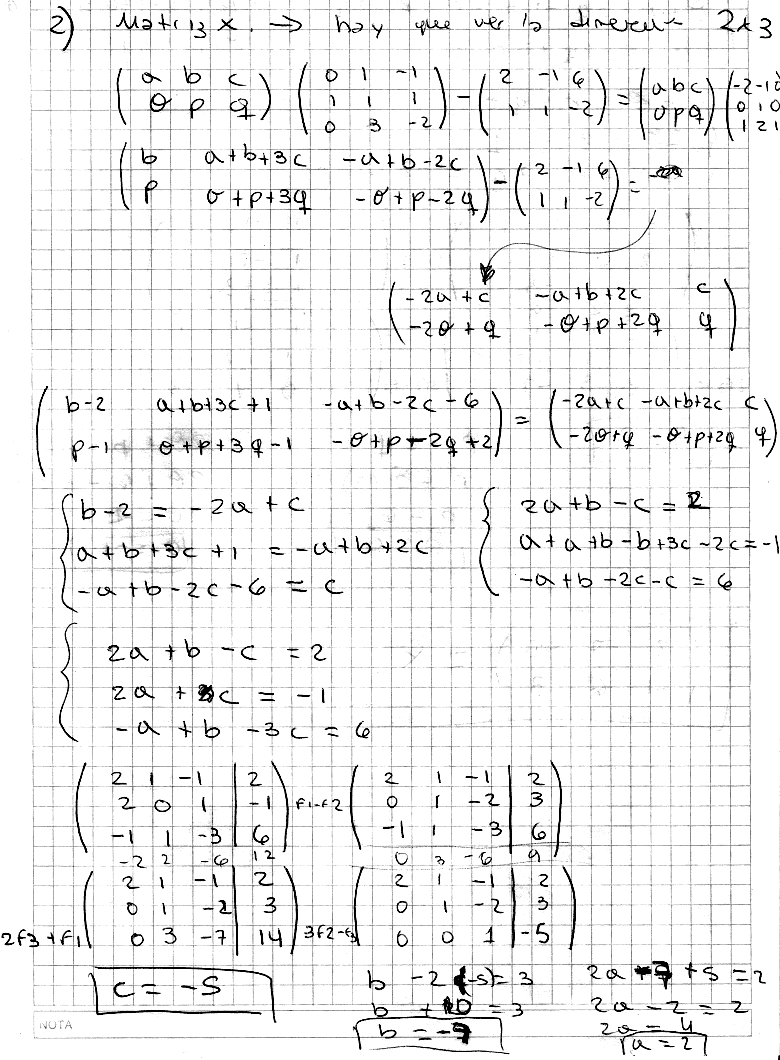 2) Matriz X. → hay que ver la dimensión 2x3
( a b c ; o p q ) ( 0 1 -1 ; 1 1 1 ; 0 3 -2 ) - ( 2 -1 6 ; 1 1 -2 ) = ( a b c ; o p q ) ( -2 -1 0 ; 0 1 0 ; 1 2 1
( b a+b+3c -a+b-2c ; p o+p+3q -o+p-2q ) - ( 2 -1 6 ; 1 1 -2 ) =
( -2a+c -a+b+2c c ; -2o+q -o+p+2q q )
( b-2 a+b+3c+1 -a+b-2c-6 ; p-1 o+p+3q-1 -o+p-2q+2 ) = ( -2a+c -a+b+2c c ; -2o+q -o+p+2q q )
b-2 = -2a+c 2a+b-c=2
a+b+3c+1 = -a+b+2c a+a+b-b+3c-2c=-1
-a+b-2c-6 = c -a+b-2c-c=6
2a+b-c = 2
2a+c = -1
-a+b-3c=6
( 2 1 -1 | 2 ) ( 2 1 -1 | 2 )
( 2 0 1 | -1 ) F1-F2 ( 0 1 -2 | 3 )
( -1 1 -3 | 6 ) ( -1 1 -3 | 6 )
-2 2 -6 12 0 3 -6 9
( 2 1 -1 | 2 ) ( 2 1 -1 | 2 )
( 0 1 -2 | 3 ) ( 0 1 -2 | 3 )
2F3+F1 ( 0 3 -7 | 14 ) 3F2-F3 ( 0 0 1 | -5 )
c=-5 b-2(-5)=3 2a-7+5=2
b+10=3 2a-2=2
b=-7 2a=4
a=2
NOTA